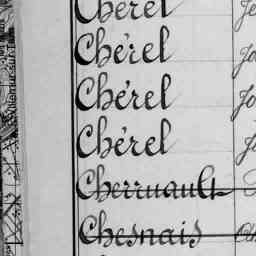 Chérel
Chérel
Chérel
Chérel
Cherruault
Chesnais